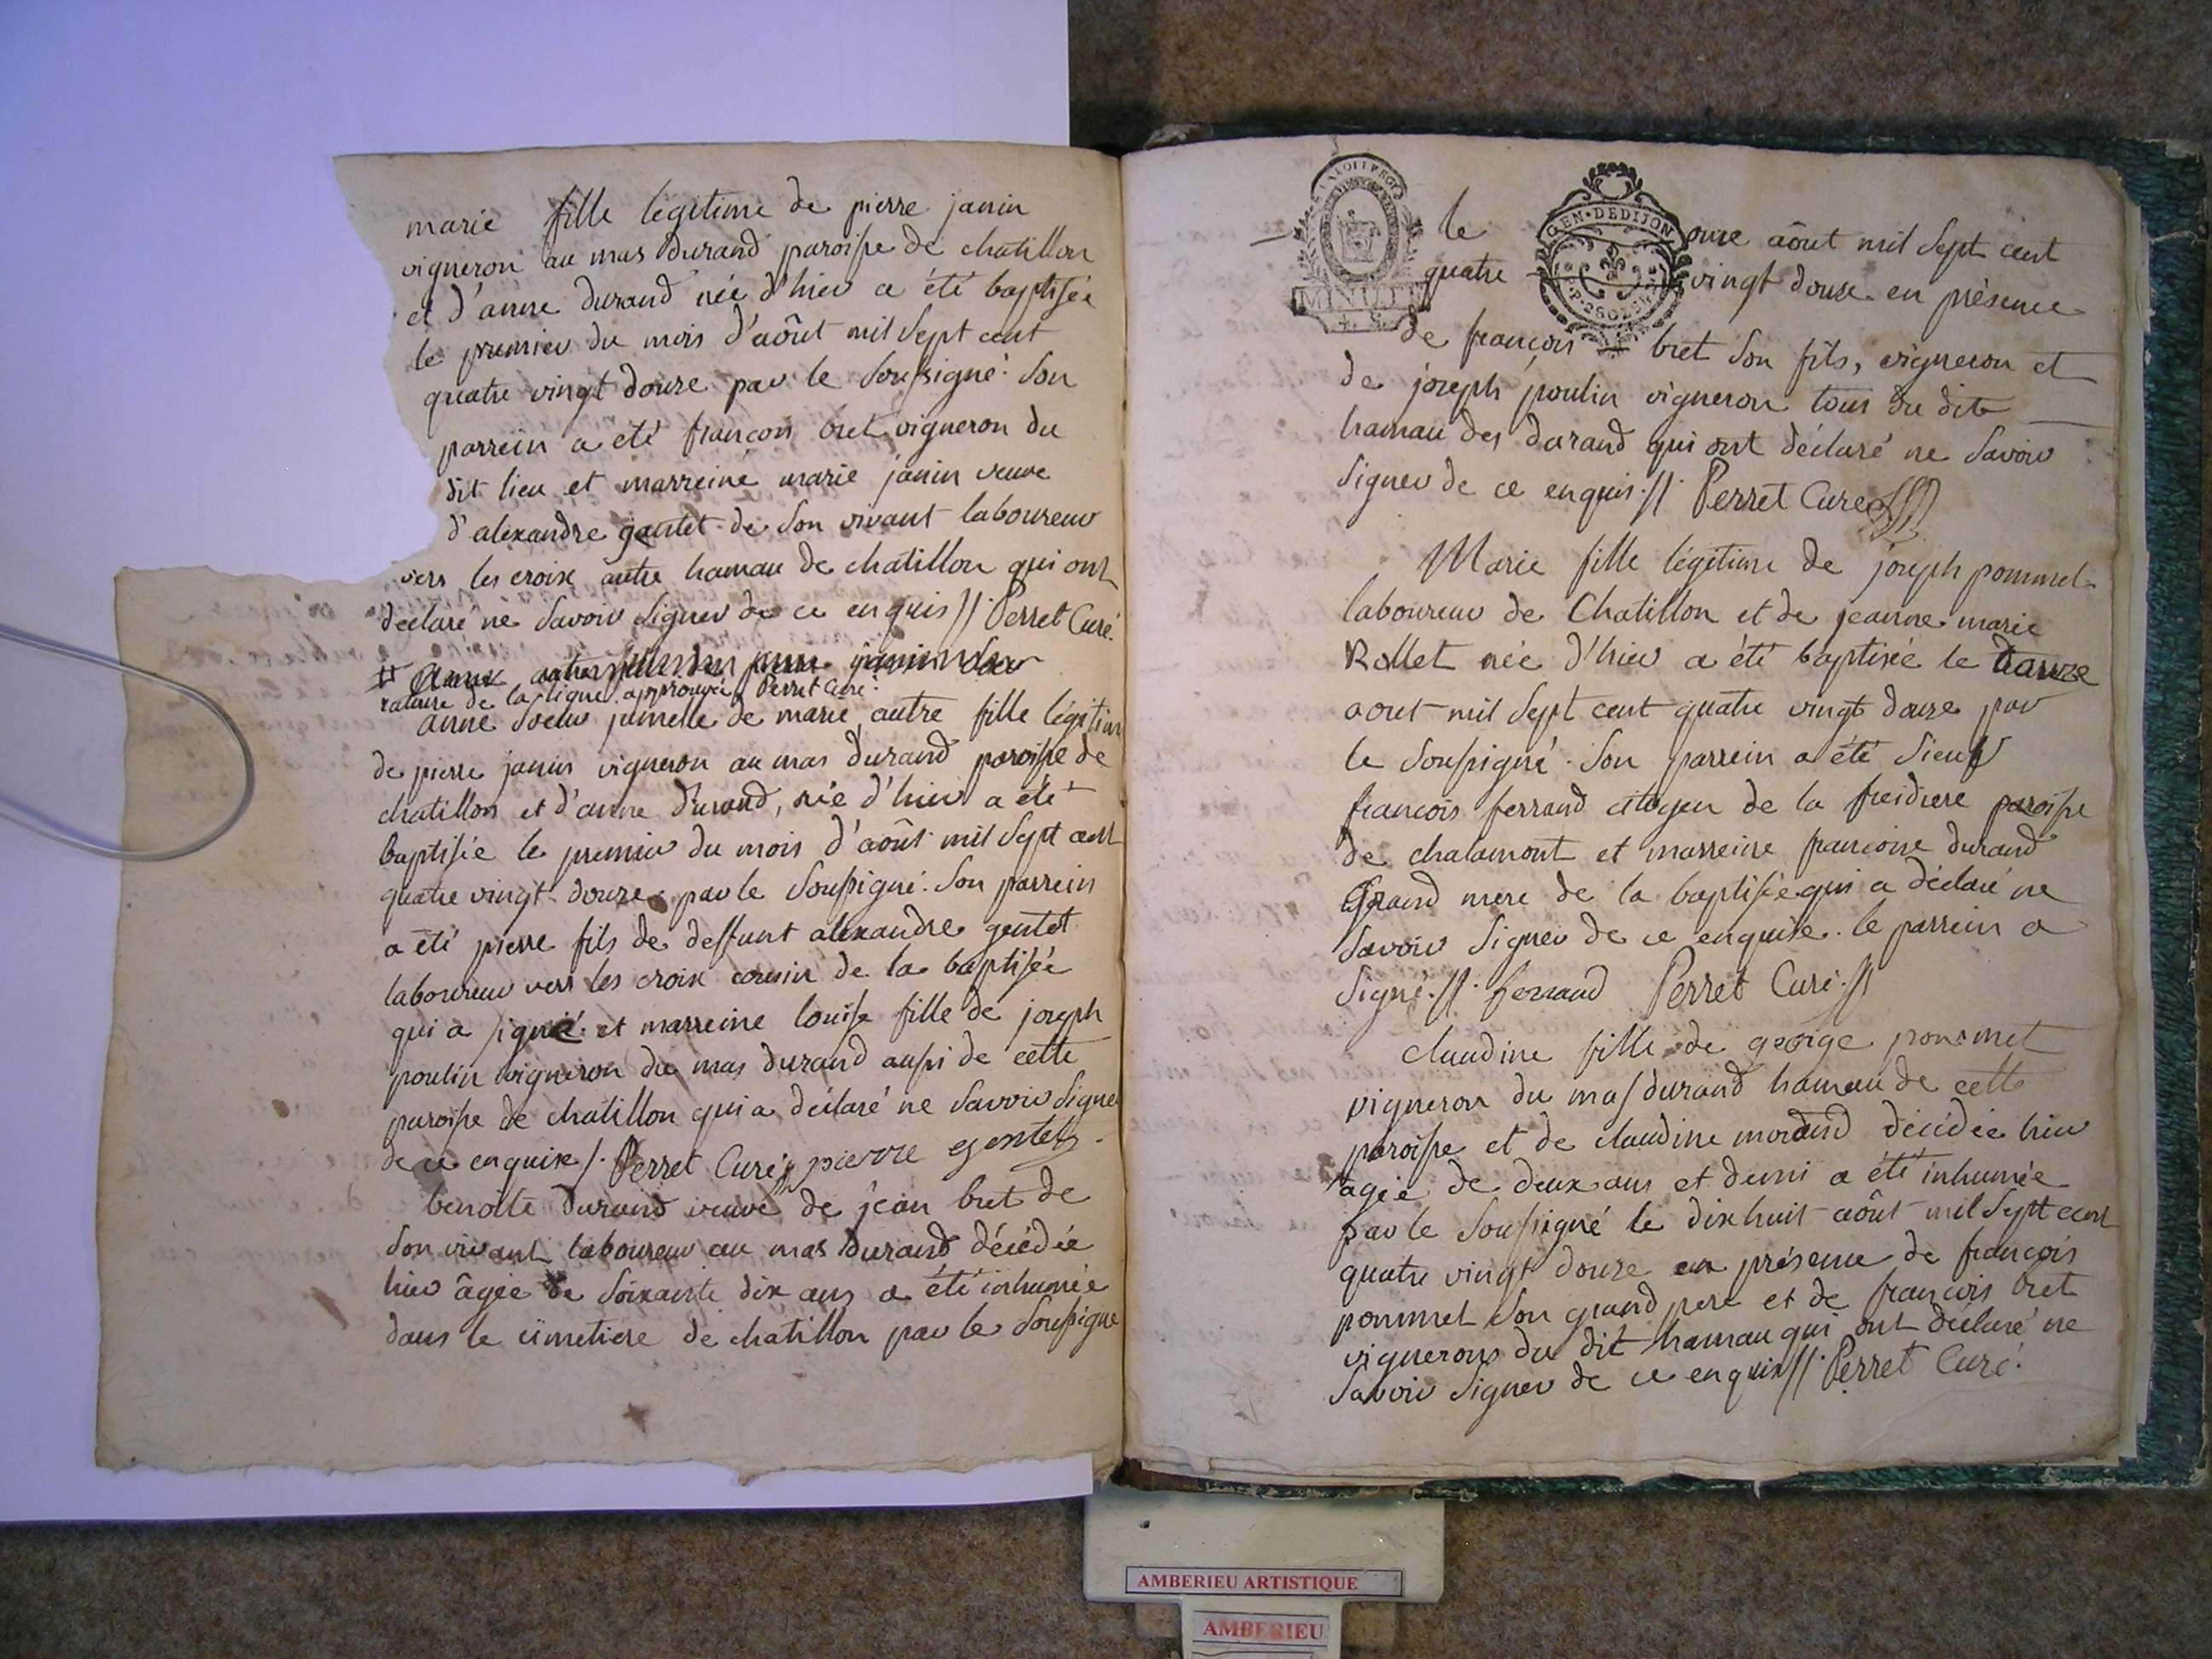 marie fille legitime de pierre janin
vigneron au mas durand paroisse de chatillon
et d'anne durand née d'hier a été baptisée
le premier du mois d'aôut mil sept cent
quatre vingt douze par le soussigné. Son
parrein a eté francois bret vigneron du
dit lieu et marreine marie janin veuve
d'alexandre gentet de son vivant laboureur
vers les croix autre hamau de chatillon qui ont
déclaré ne savoir signer de ce enquis //. Perret Curé.
rature de la ligne approuvée Perret Curé.
anne soeur jumelle de marie autre fille légitime
de pierre janin vigneron au mas durand paroisse de
chatillon et d'anne durand, née d'hier a été
baptisée le premier du mois d'aôut mil sept cent
quatre vingt douze par le soussigné. Son parrein
a été pierre fils de deffunt alexandre gentet
laboureur vers les croix cousin de la baptisée
qui a signé. et marreine louise fille de joseph
poulin vigneron du mas durand aussi de cette
paroisse de chatillon qui a déclaré ne savoir signer
de ce enquise /. Perret Curé pierre gentet
benoite durand veuve de jean bret de
son vivant laboureur au mas durand décédée
hier âgée de soixante dix ans a été inhumée
dans le cimetiere de chatillon par le soussigné
MINUTE
GEN · DE DIJON
le onze aôut mil sept cent
quatre vingt douze en présence
de françois bret son fils, vigneron et
de joseph poulin vigneron tous du dit
hamau des durand qui ont déclaré ne savoir
signer de ce enquis. //. Perret Curé
Marie fille légitime de joseph pommet
laboureur de Chatillon et de jeanne marie
Rollet née d'hier a été baptisée le
aout mil sept cent quatre vingt douze par
le soussigné. Son parrein a été sieur
francois ferrand citoyen de la freidiere paroisse
de chalamont et marreine francoise durand
Grand mere de la baptisée qui a déclaré ne
savoir signer de ce enquise. le parrein a
signé. //. ferrand Perret Curé. //
claudine fille de george pommet
vigneron du mas durand hamau de cette
paroisse et de claudine morand décédée hier
agée de deux ans et demi a été inhumée
par le soussigné le dix huit aôut mil sept cent
quatre vingt douze en présence de francois
pommet son grand pere et de francois bret
vignerons du dit hamau qui ont déclaré ne
savoir signer de ce enquis //. Perret Curé.
AMBERIEU ARTISTIQUE
AMBERIEU